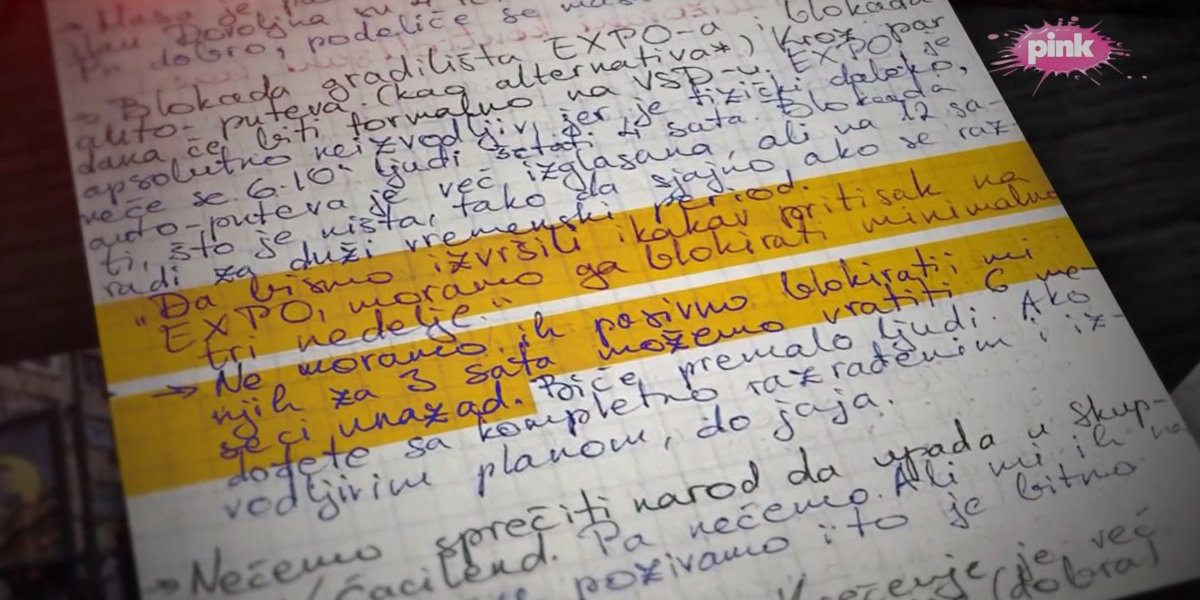 Dovoljna su 4
pa dobro, podeliće se
→ Blokada gradilišta EXPO-a i blokada
auto-puteva (kao alternativa*) kroz par
dana će biti formalno na VSD-u. EXPO je
apsolutno neizvodljiv, jer je fizički daleko,
neće se 6-10 ljudi šetati 4 sata. Blokada
auto-puteva je već izglasana, ali na 12 sa-
ti, što je ništa, tako da sjajno ako se raz-
radi za duži vremenski period.
"Da bismo izvršili ikakav pritisak na
EXPO, moramo ga blokirati minimalno
tri nedelje."
→ Ne moramo ih pasivno blokirati; mi
njih za 3 sata možemo vratiti 6 me-
seci unazad. Biće premalo ljudi. Ako
dođete sa kompletno razrađenim i iz-
vodljivim planom, do jaja.
→ Nećemo sprečiti narod da upada u skup-
Ćacilend. Pa nećemo. Ali mi ih na
pozivamo i to je bitno
je već
(dobra)
pink